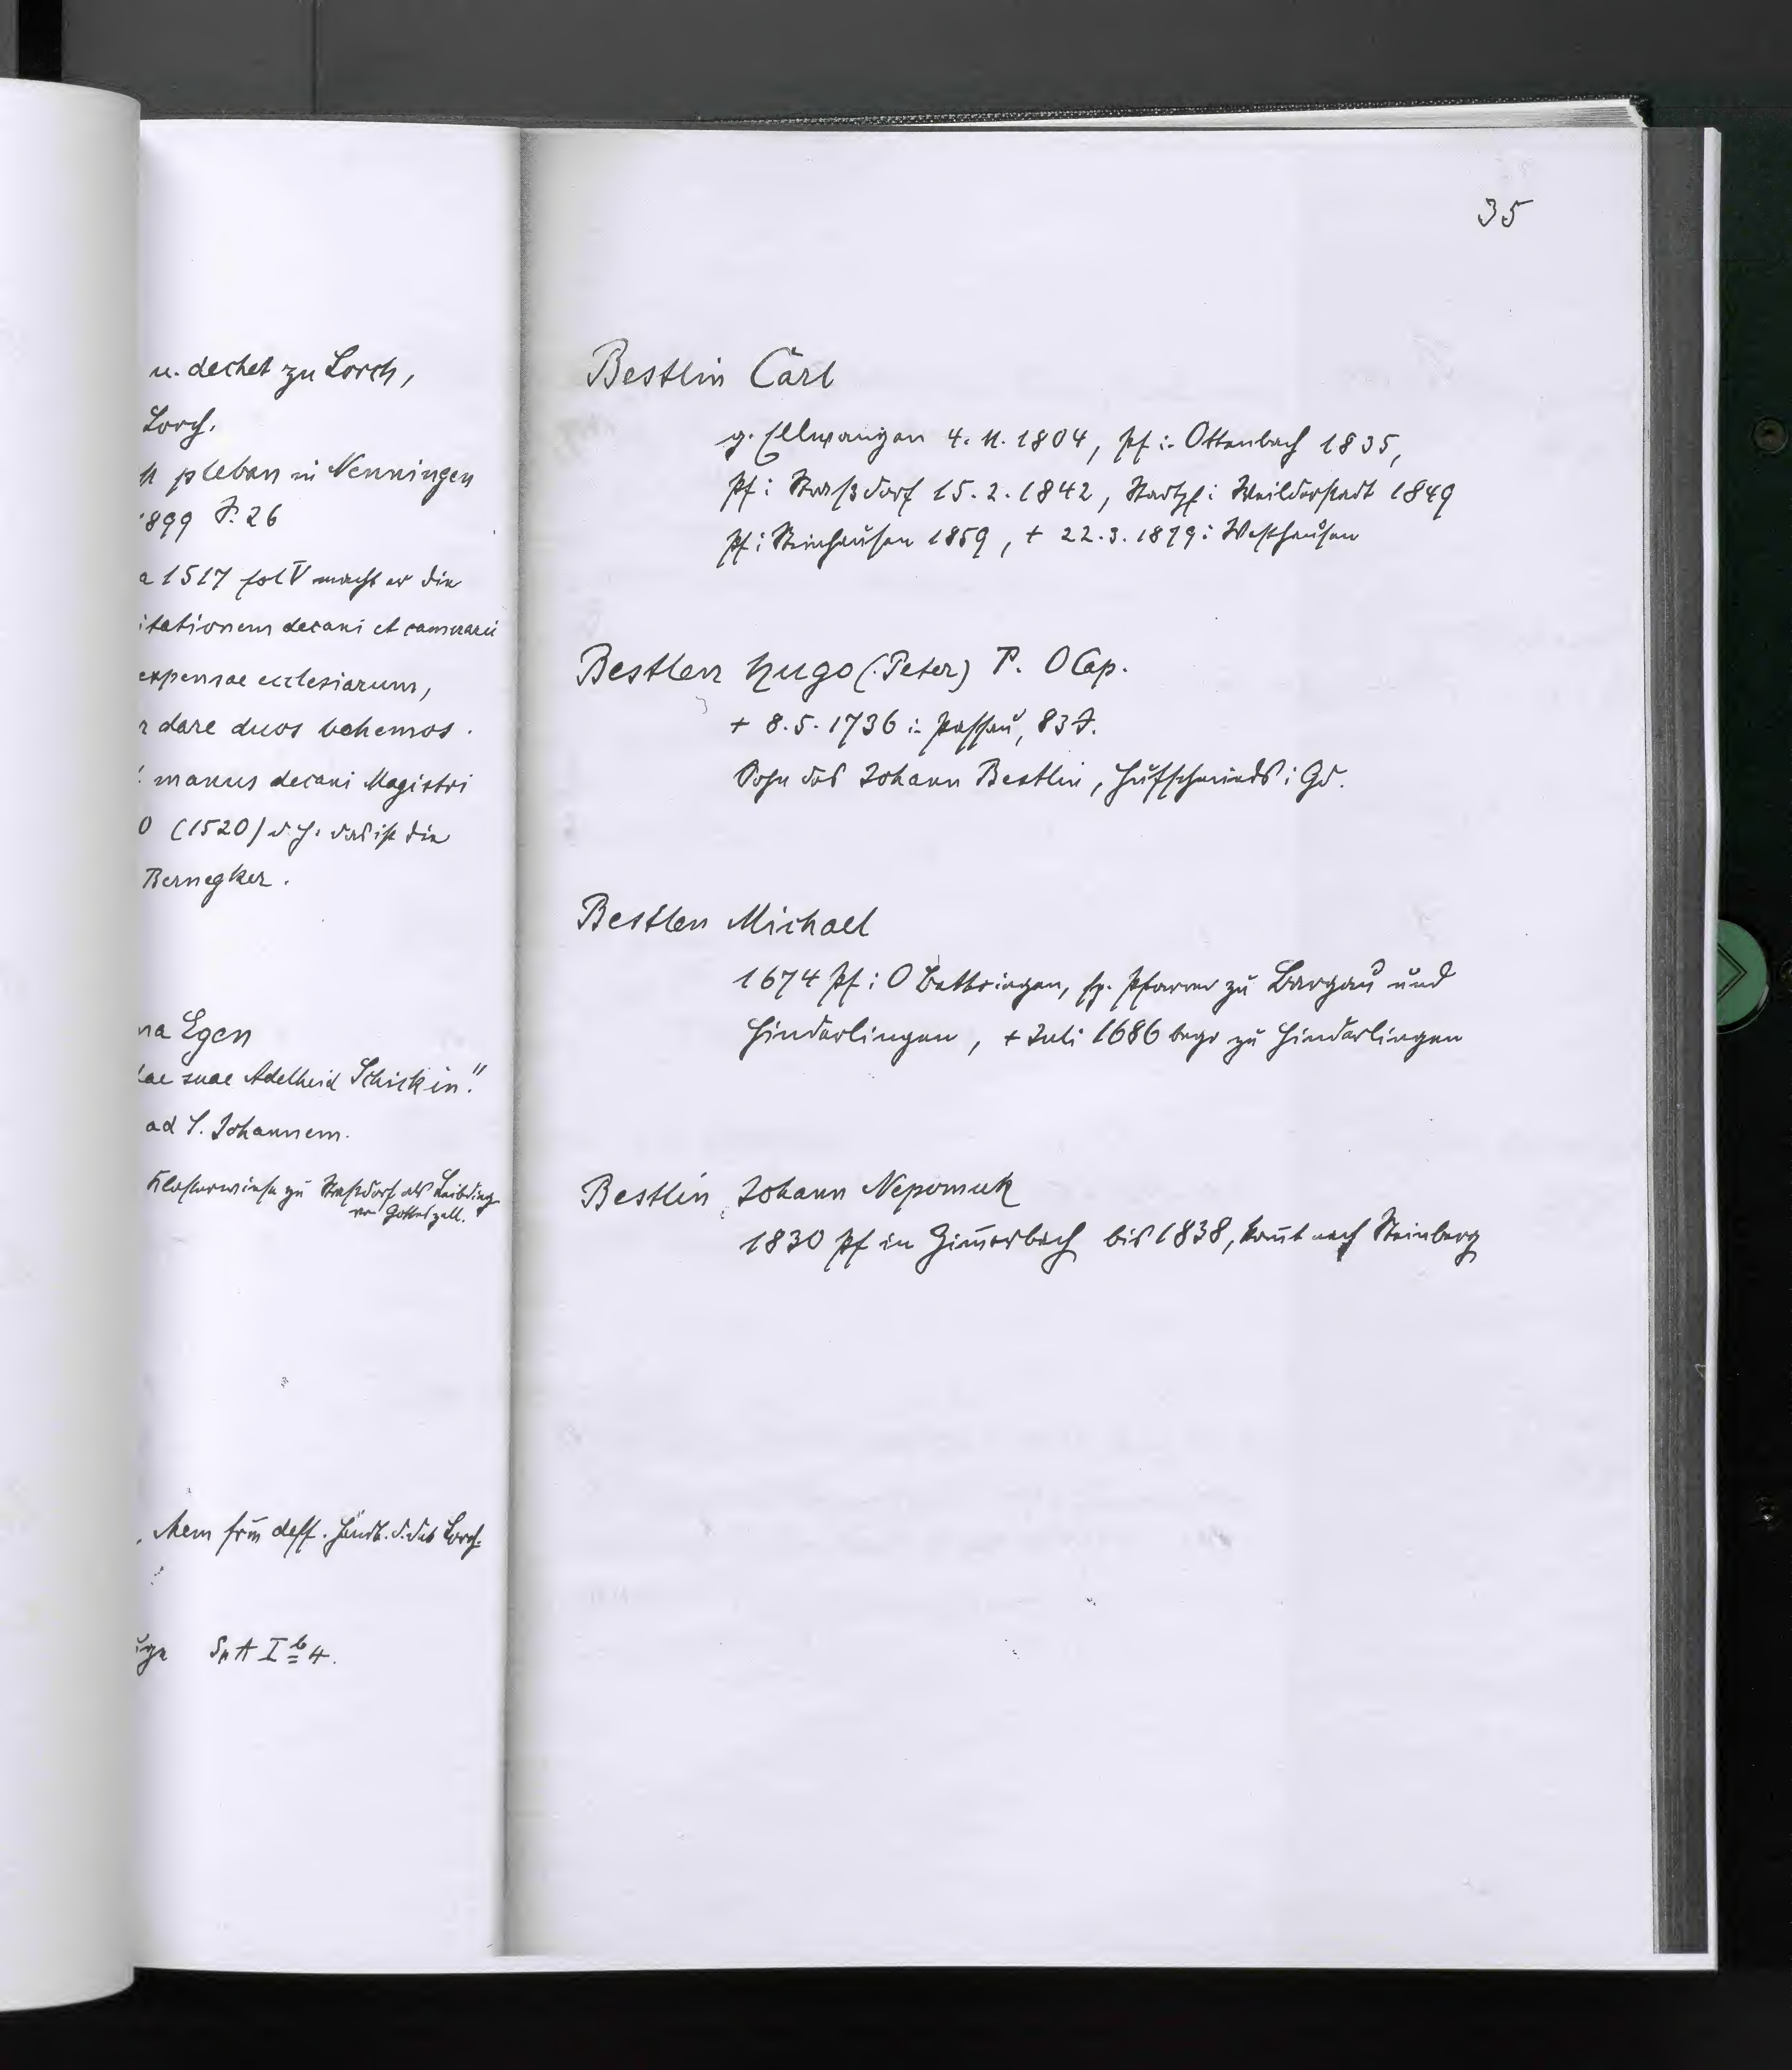 u. dechet zu Lorch,
Lorch.
pleban in Nenningen
1899 S. 26
a 1517 fol V macht er die
itationem decani et camerarii
expensae ecclesiarum,
dare duos bohemos.
manus decani Magistri
0 (1520) d. h. das ist die
Bernegker.
na Egen
lae suae Adelheid Schickin."
ad S. Johannem.
Klosterwiese zu Straßdorf als Leibding
von Gotteszell.
dess. d. des Lorch.
SpA I b 4.
35
Bestlin Carl
g. Ellwangen 4. 11. 1804, Pf i. Ottenbach 1835,
Pf i Straßdorf 15. 2. 1842, Stadtpf i Weilderstadt 1849
Pf i Steinhausen 1859, + 22. 3. 1879 i Westhausen
Bestlen Hugo (Peter) P. O Cap.
+ 8. 5. 1736 i. Passau, 83 J.
Sohn des Johann Bestlin, Hufschmieds i Gd.
Bestlen Michael
1674 Pf i O Bettringen, sp. Pfarrer zu Bargau und
Hinderlingen, + Juli 1686 begr zu Hinderlingen
Bestlin Johann Nepomuk
1830 Pf in Zim̄erbach bis 1838, kom̄t nach Steinberg